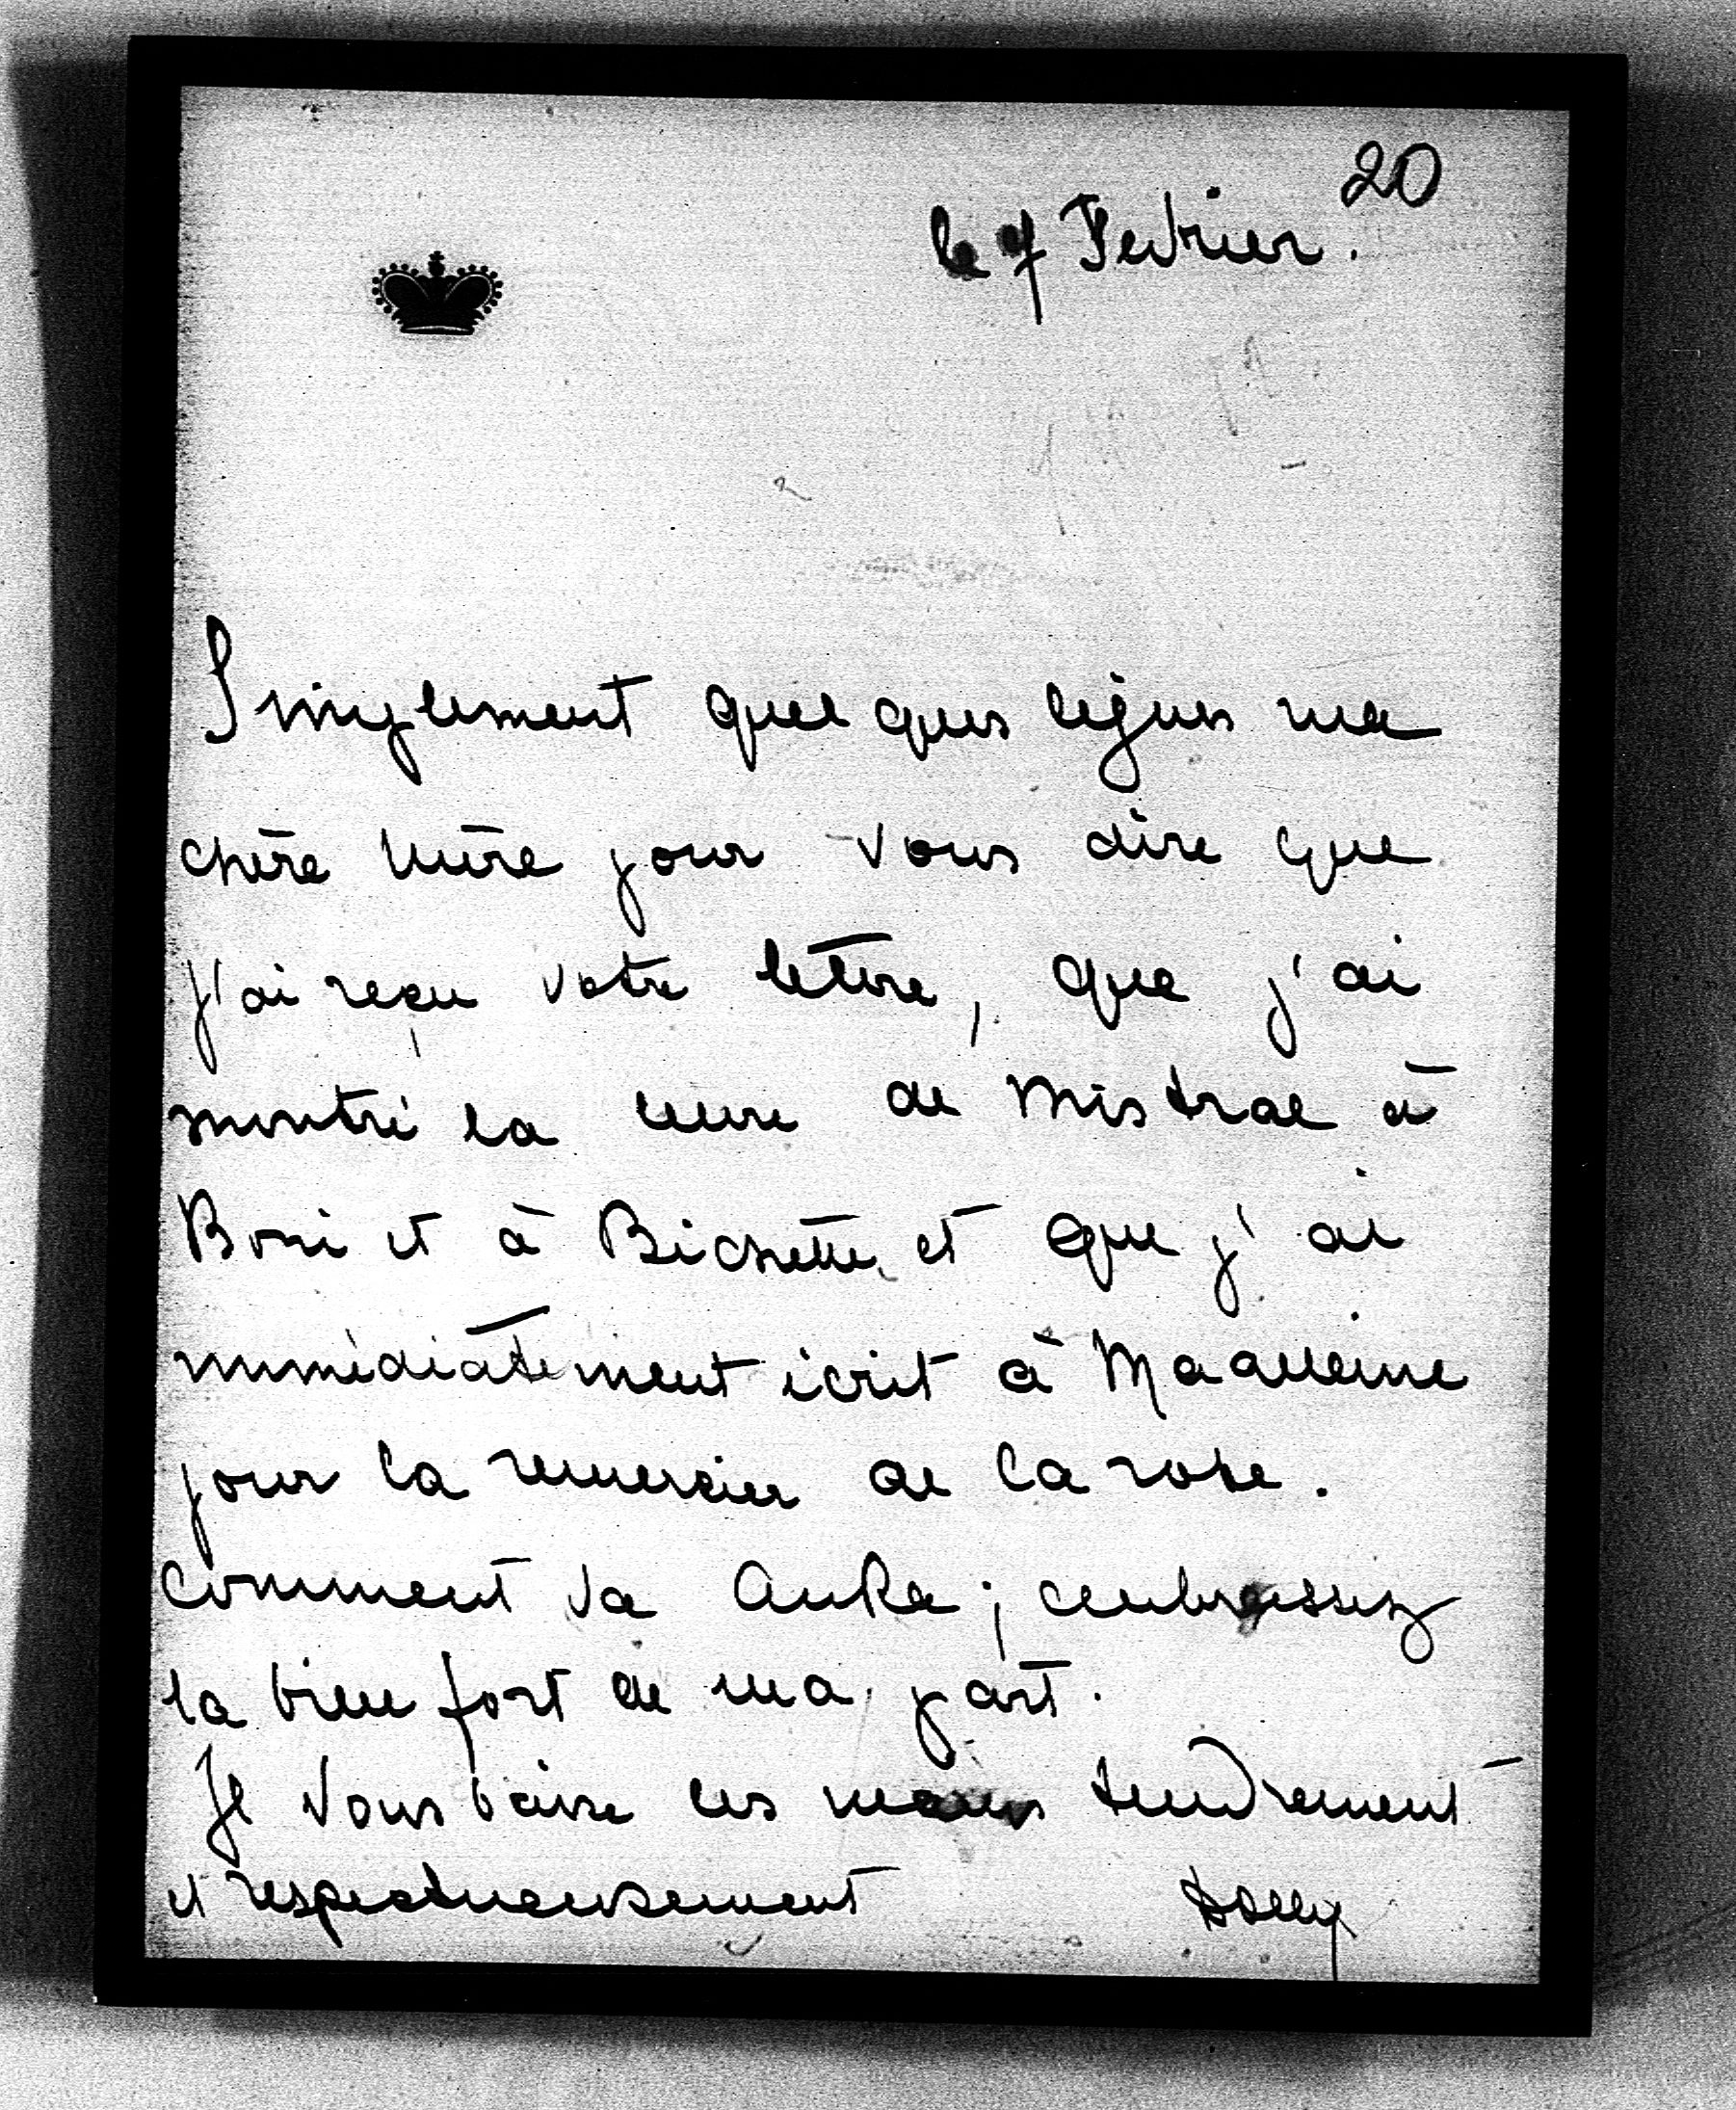 20
le 7 Fevrier.
Simplement quelques lignes ma
chère mère pour vous dire que
j'ai reçu votre lettre, que j'ai
montré la de Mistral à
Boni et à Bichette et que j'ai
immédiatement écrit à Madeleine
pour la remercier de la robe.
Comment va Anka; embrassez
la bien fort de ma part.
Je vous baise les mains tendrement
et respectueusement Dolly